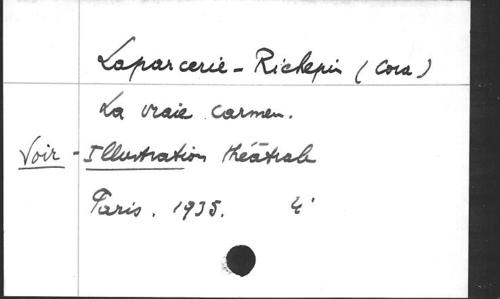 Laparcerie - Richepin (Cora)
La vraie Carmen.
Voir - Illustration théâtrale
Paris. 1935. 4'